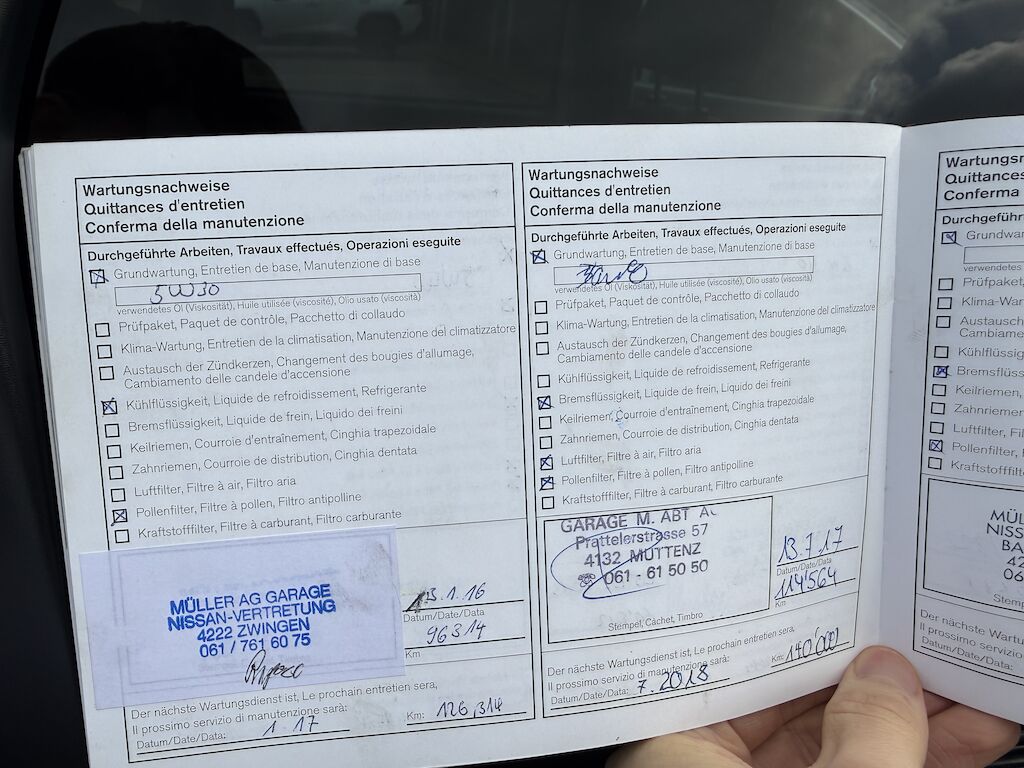 Wartungsnachweise
Quittances d'entretien
Conferma della manutenzione
Durchgeführte Arbeiten, Travaux effectués, Operazioni eseguite
Grundwartung, Entretien de base, Manutenzione di base
5W30
verwendetes Öl (Viskosität), Huile utilisée (viscosité), Olio usato (viscosità)
Prüfpaket, Paquet de contrôle, Pacchetto di collaudo
Klima-Wartung, Entretien de la climatisation, Manutenzione del climatizzatore
Austausch der Zündkerzen, Changement des bougies d'allumage,
Cambiamento delle candele d'accensione
Kühlflüssigkeit, Liquide de refroidissement, Refrigerante
Bremsflüssigkeit, Liquide de frein, Liquido dei freini
Keilriemen, Courroie d'entraînement, Cinghia trapezoidale
Zahnriemen, Courroie de distribution, Cinghia dentata
Luftfilter, Filtre à air, Filtro aria
Pollenfilter, Filtre à pollen, Filtro antipolline
Kraftstofffilter, Filtre à carburant, Filtro carburante
MÜLLER AG GARAGE
NISSAN-VERTRETUNG
4222 ZWINGEN
061 / 761 60 75
.1.16
Datum/Date/Data
96314
Km
Der nächste Wartungsdienst ist, Le prochain entretien sera,
Il prossimo servizio di manutenzione sarà:
Datum/Date/Data: 1-17
Km: 126,314
Wartungsnachweise
Quittances d'entretien
Conferma della manutenzione
Durchgeführte Arbeiten, Travaux effectués, Operazioni eseguite
Grundwartung, Entretien de base, Manutenzione di base
verwendetes Öl (Viskosität), Huile utilisée (viscosité), Olio usato (viscosità)
Prüfpaket, Paquet de contrôle, Pacchetto di collaudo
Klima-Wartung, Entretien de la climatisation, Manutenzione del climatizzatore
Austausch der Zündkerzen, Changement des bougies d'allumage,
Cambiamento delle candele d'accensione
Kühlflüssigkeit, Liquide de refroidissement, Refrigerante
Bremsflüssigkeit, Liquide de frein, Liquido dei freini
Keilriemen, Courroie d'entraînement, Cinghia trapezoidale
Zahnriemen, Courroie de distribution, Cinghia dentata
Luftfilter, Filtre à air, Filtro aria
Pollenfilter, Filtre à pollen, Filtro antipolline
Kraftstofffilter, Filtre à carburant, Filtro carburante
GARAGE M. ABT AG
Prattelerstrasse 57
4132 MUTTENZ
☏ 061 - 61 50 50
Stempel, Cachet, Timbro
13.7.17
Datum/Date/Data
114564
Km
Der nächste Wartungsdienst ist, Le prochain entretien sera,
Il prossimo servizio di manutenzione sarà:
Datum/Date/Data: 7.2018
Km: 140'000
Wartungsn
Quittances
Conferma
Durchgeführ
Grundwar
verwendetes
Prüfpaket,
Klima-War
Austausch
Cambiame
Kühlflüssig
Bremsflüss
Keilriemen,
Zahnriemen
Luftfilter, F
Pollenfilter,
Kraftstofffil
MÜL
NISS
BA
42
06
Stemp
Der nächste Wartu
Il prossimo servizio
Datum/Date/Data: